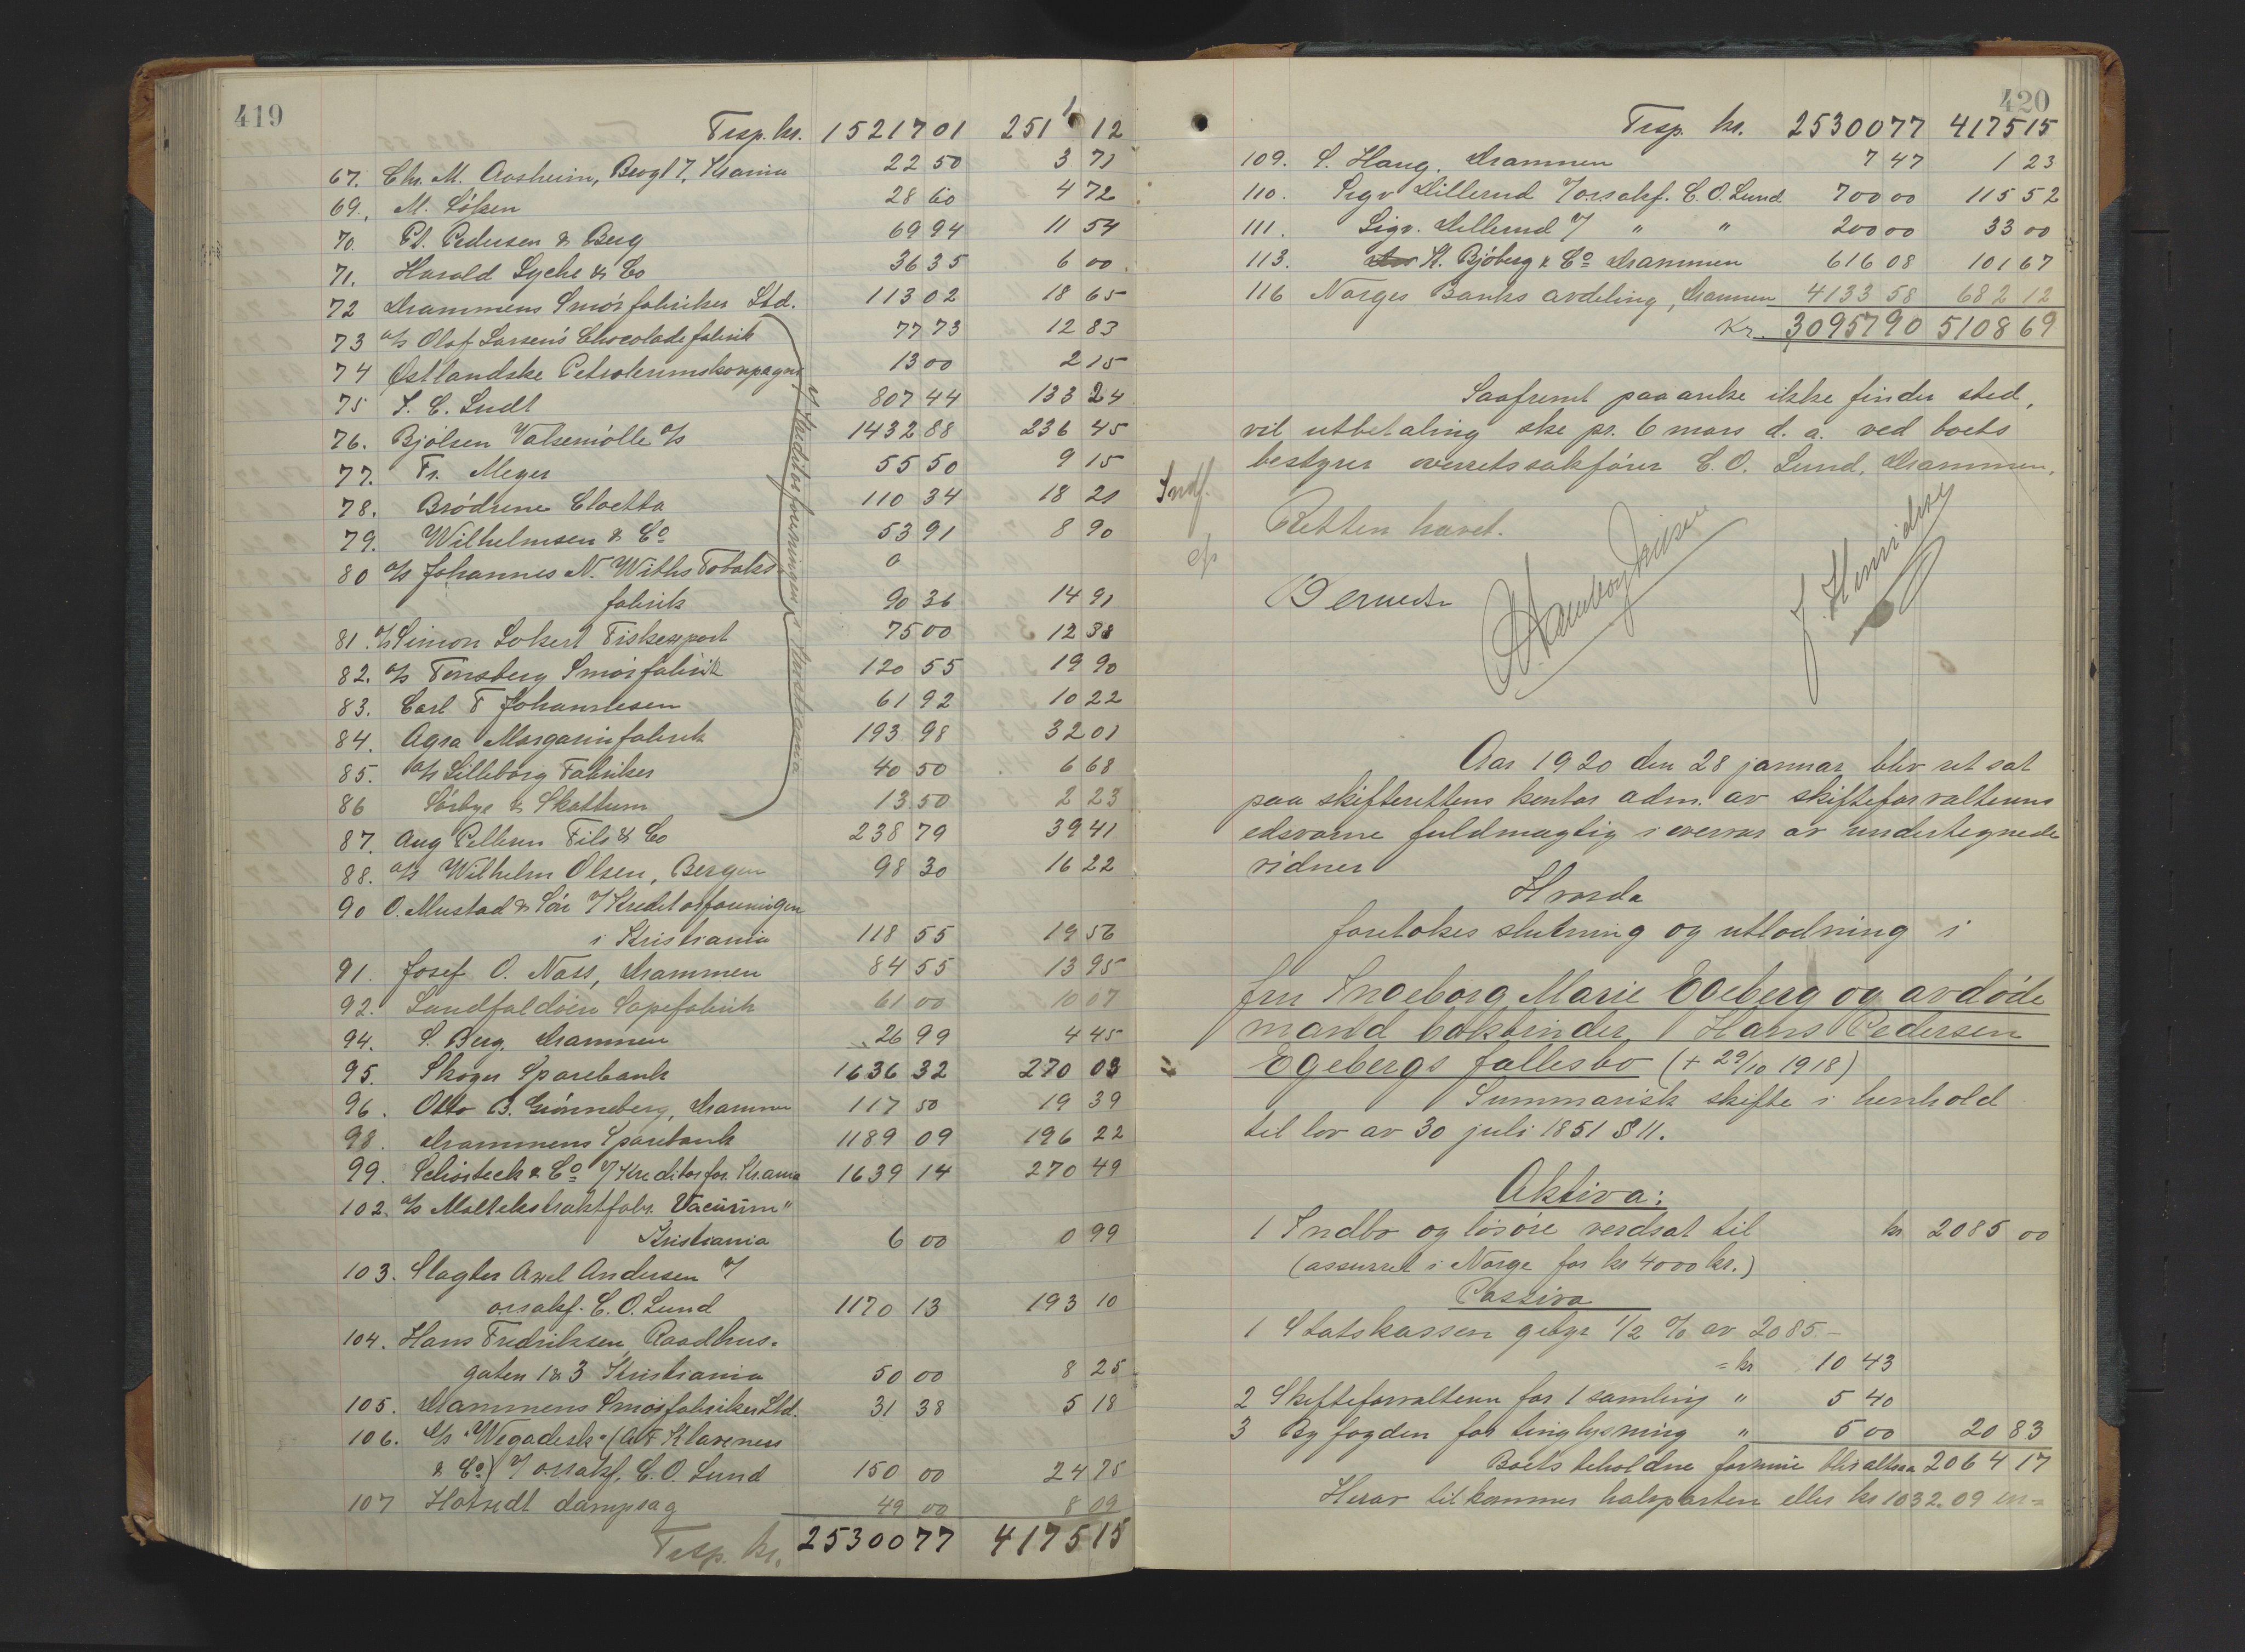 419
Trsp. kr. 15217 01 2511 12
67. Chr. M. Aasheim, Bergl 7, Kr.ania 22 50 3 71
69. M. Löken 28 60 4 72
70. Pt. Pedersen & Berg 69 94 11 54
71. Harald Lyche & Co 36 35 6 00
72 Drammens Smörfabriker Ltd. 113 02 18 65
73 a/s Olaf Larsens Chocoladefabrik 77 73 12 83
74 Østlandske Petroleumskompagni 13 00 2 15
75 J. C. Ludt 807 44 133 24
76. Bjölsen Valsemölle a/s 1432 88 236 45
77. Fr. Meyer 55 50 9 15
78. Brödrene Cloetta 110 34 18 21
79. Wilhelmsen & Co 53 91 8 90
80 a/s Johannes N. Withs Tobaks-
fabrik 90 36 14 91
81. a/s Simon Lokert Fiskexport 75 00 12 38
82. a/s Tönsberg Smörfabrik 120 55 19 90
83. Carl F Johannesen 61 92 10 22
84. Agra Margarinfabrik 193 98 32 01
85. a/s Lilleborg Fabriker 40 50 6 68
86 Sörbye & Skattum 13 50 2 23
v/ Kreditorforeningen i Kristiania
87. Aug Pellerin Fils & Co 238 79 39 41
88. a/s Wilhelm Olsen, Bergen 98 30 16 22
90 O. Mustad & Sön v/ Kreditorforeningen
i Kristiania 118 55 19 56
91. Josef O. Nass, Drammen 84 55 13 95
92. Sundfaldöen Sæpefabrik 61 00 10 07
94. S. Berg. Drammen 26 99 4 45
95. Skoger Sparebank 1636 32 270 03
96. Otto B. Grönneberg, Drammen 117 50 19 39
98. Drammens Sparebank 1189 09 196 22
99. Schösteck & Co v/ Kreditorfor. Kr.ania 1639 14 270 49
102. a/s Maltekstraktfabr. "Vacuum"
Kristiania 6 00 0 99
103. Slagter Axel Andersen v/
o.r.sakf. C. O. Lund 1170 13 193 10
104. Hans Fredriksen, Raadhus=
gaten 1 & 3 Kristiania 50 00 8 25
105. Drammens Smörfabriker Ltd. 31 38 5 18
106. a/s "Wegadesk" (A. F. Klaveness
& Co) v/ o.r.sakf. C. O. Lund 150 00 24 75
107 Hotvedt dampsag 49 00 8 09
Trsp. kr. 25300 77 4175 15
420
Trsp. kr. 25300 77 4175 15
109. S. Haug, Drammen 7 47 1 23
110. Sigv Lillerud v/ o.r.sakf. C. O. Lund 700 00 115 52
111. Sigv. Lillerud v/ " " 200 00 33 00
113. St. Bjöberg & Co Drammen 616 08 101 67
116 Norges Banks avdeling, Drammen 4133 58 682 12
Kr. 30957 90 5108 69
Saafremt paaanke ikke finder sted,
vil utbetaling ske pr. 6 mars d. a. ved boets
bestyrer overretssakförer C. O. Lund, Drammen.
Indf.
Retten hævet.
J. Henriksen
Aar 1920 den 28 januar blev ret sat
paa skifterettens kontor adm. av skifteforvalterens
edsvorne fuldmægtig i overvær av undertegnede
vidner
Hvorda
foretokes slutning og utlodning i
fru Ingeborg Marie Egeberg og avdøde
mand bokbinder Hans Pedersen
Egebergs fællesbo (+ 29/10 1918)
Summarisk skifte i henhold
til lov av 30 juli 1851 § 11.
Aktiva:
1 Indbo og lösöre verdsat til kr 2085 00
(assurert i Norge for kr 4000 kr.)
Passiva
1 Statskassen gebyr 1/2 % av 2085.-
= kr 10 43
2 Skifteforvalteren for 1 samling " 5 40
3 Byfogden for tinglysning " 5 00 20 83
Boets beholdne formue blir altsaa 2064 17
Herav tilkommer halvparten eller kr 1032.09 en=